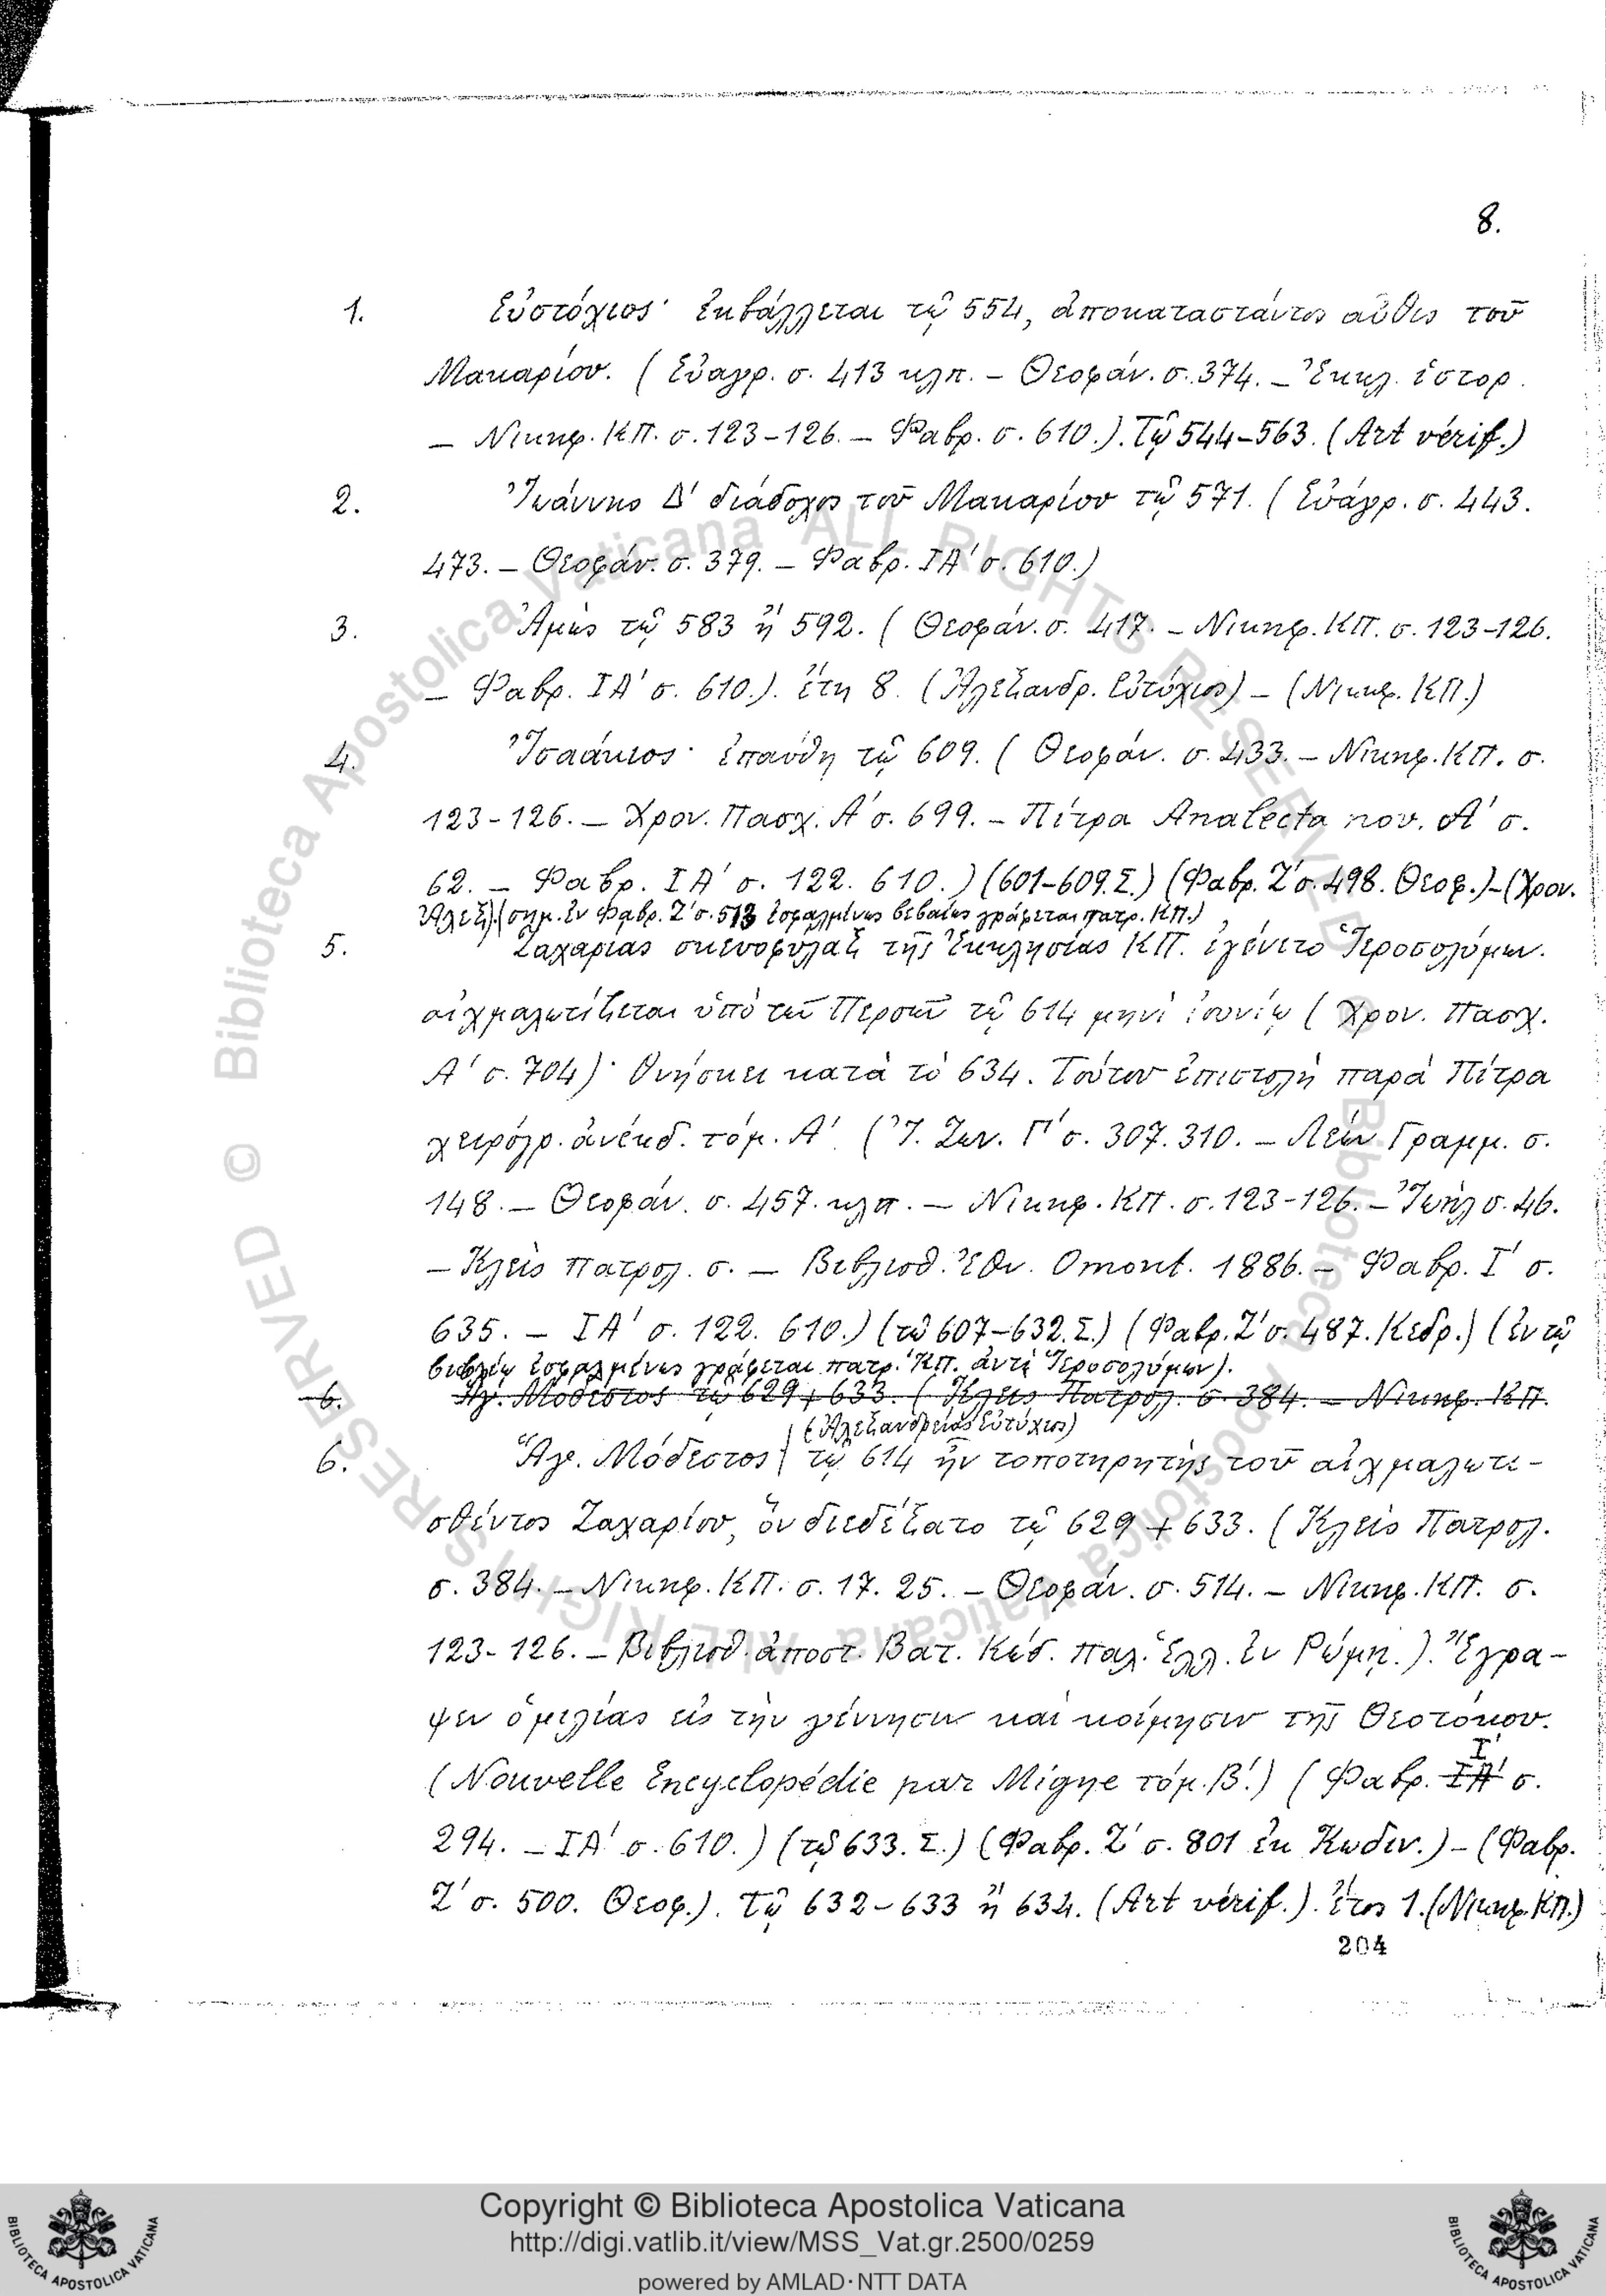 8.
1. Εὐστόχιος· ἐκβάλλεται τῷ 554, ἀποκαταστάντος αὖθις τοῦ
Μακαρίου. (Εὐαγρ. σ. 413 κλπ. – Θεοφάν. σ. 374. – Ἐκκλ. ἱστορ.
– Νικηφ. ΚΠ. σ. 123–126. – Φαβρ. σ. 610.). Τῷ 544–563. (Art vérif.)
2. Ἰωάννης Δ' διάδοχος τοῦ Μακαρίου τῷ 571. (Εὐάγρ. σ. 443.
473. – Θεοφάν. σ. 379. – Φαβρ. ΙΑ' σ. 610.)
3. Ἀμὼς τῷ 583 ἢ 592. (Θεοφάν. σ. 417. – Νικηφ. ΚΠ. σ. 123–126.
– Φαβρ. ΙΑ' σ. 610.). ἔτη 8. (Ἀλεξανδρ. Εὐτύχιος) – (Νικηφ. ΚΠ.)
4. Ἰσαάκιος· ἐπαύθη τῷ 609. (Θεοφάν. σ. 433. – Νικηφ. ΚΠ. σ.
123–126. – Χρον. Πασχ. Α' σ. 699. – Πίτρα Analecta nov. Α' σ.
62. – Φαβρ. ΙΑ' σ. 122. 610.) (601–609. Σ.) (Φαβρ. Ζ' σ. 498. Θεοφ.) – (Χρον.
Ἀλεξ.) (σημ. ἐν Φαβρ. Ζ' σ. 513 ἐσφαλμένως βεβαίως γράφεται πατρ. ΚΠ.)
5. Ζαχαρίας σκευοφύλαξ τῆς Ἐκκλησίας ΚΠ. ἐγένετο Ἱεροσολύμων.
αἰχμαλωτίζεται ὑπὸ τῶν Περσῶν τῷ 614 μηνὶ ἰουνίῳ (Χρον. Πασχ.
Α' σ. 704)· θνήσκει κατὰ τὸ 634. Τούτου ἐπιστολὴ παρὰ Πίτρα
χειρόγρ. ἀνέκδ. τόμ. Α' (Ἰ. Ζων. Γ' σ. 307. 310. – Λέων Γραμμ. σ.
148. – Θεοφάν. σ. 457. κλπ. – Νικηφ. ΚΠ. σ. 123–126. – Ἰωὴλ σ. 46.
– Κλεὶς Πατρολ. σ. – Βιβλιοθ. Ἐθν. Omont. 1886. – Φαβρ. Ι' σ.
635. – ΙΑ' σ. 122. 610.) (τῷ 607–632. Σ.) (Φαβρ. Ζ' σ. 487. Κεδρ.) (ἐν τῷ
βιβλίῳ ἐσφαλμένως γράφεται πατρ. ΚΠ. ἀντὶ Ἱεροσολύμων).
6. Ἁγ. Μόδεστος τῷ 629 + 633. (Κλεὶς Πατρολ. σ. 384. – Νικηφ. ΚΠ.
(Ἀλεξανδρείας Εὐτύχιος)
6. Ἅγ. Μόδεστος τῷ 614 ἦν τοποτηρητὴς τοῦ αἰχμαλωτι-
σθέντος Ζαχαρίου, ὃν διεδέξατο τῷ 629 + 633. (Κλεὶς Πατρολ.
σ. 384. – Νικηφ. ΚΠ. σ. 17. 25. – Θεοφάν. σ. 514. – Νικηφ. ΚΠ. σ.
123–126. – Βιβλιοθ. ἀποστ. Βατ. Κώδ. παλ. ἑλλ. ἐν Ρώμῃ.). Ἔγρα-
ψεν ὁμιλίας εἰς τὴν γέννησιν καὶ κοίμησιν τῆς Θεοτόκου.
(Nouvelle Encyclopédie par Migne τόμ. Β'.) (Φαβρ. ΙΑ' Ι' σ.
294. – ΙΑ' σ. 610.) (τῷ 633. Σ.) (Φαβρ. Ζ' σ. 801 ἐκ Κωδιν.) – (Φαβρ.
Ζ' σ. 500. Θεοφ.). Τῷ 632–633 ἢ 634. (Art vérif.). ἔτος 1. (Νικηφ. ΚΠ.)
204
© Biblioteca Apostolica Vaticana ALL RIGHTS RESERVED
© Biblioteca Apostolica Vaticana ALL RIGHTS RESERVED
Copyright © Biblioteca Apostolica Vaticana
http://digi.vatlib.it/view/MSS_Vat.gr.2500/0259
powered by AMLAD·NTT DATA
BIBLIOTECA APOSTOLICA VATICANA
BIBLIOTECA APOSTOLICA VATICANA